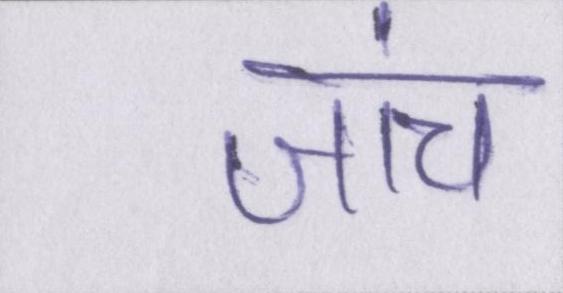 जांच